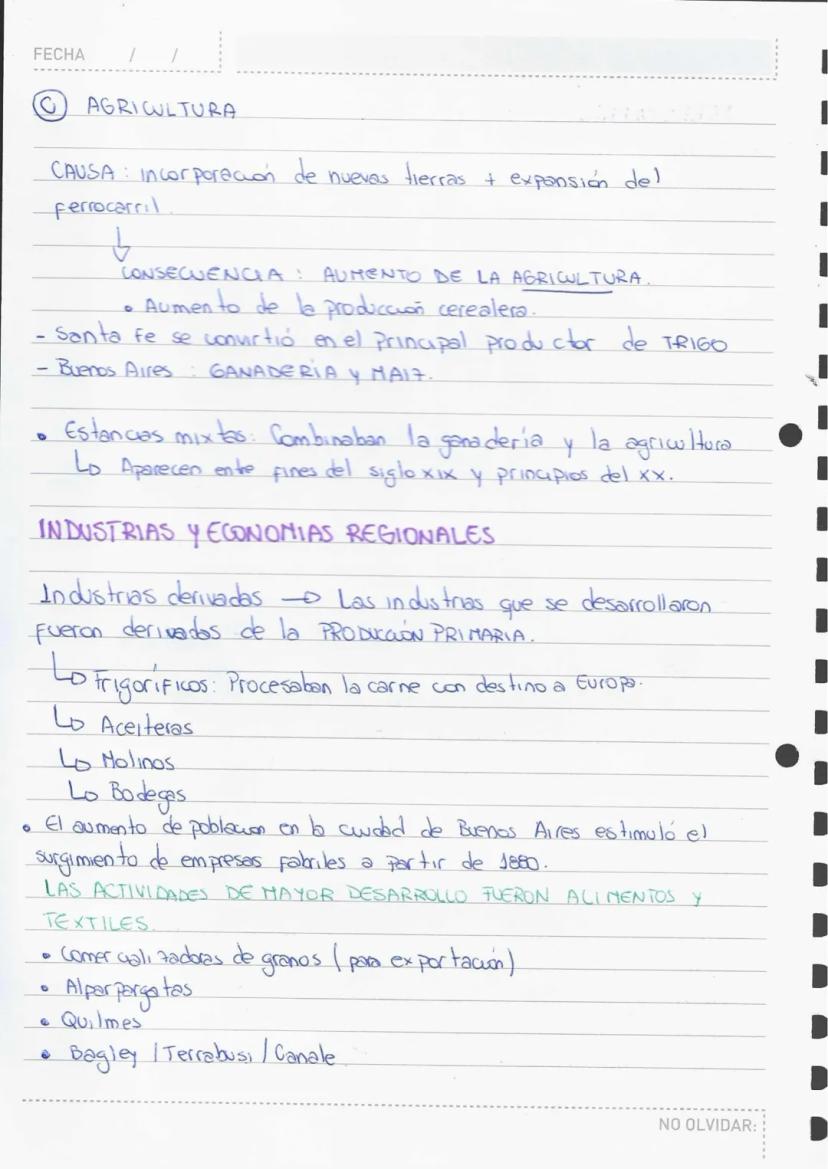 FECHA / /
Ⓒ AGRICULTURA
CAUSA: incorporación de nuevas tierras + expansión del
ferrocarril.
↓
CONSECUENCIA: AUMENTO DE LA AGRICULTURA.
• Aumento de la producción cerealera.
- Santa Fe se convirtió en el principal productor de TRIGO
- Buenos Aires: GANADERÍA y MAIZ.
• Estancias mixtas: Combinaban la ganadería y la agricultura
↳ Aparecen ente fines del siglo XIX y principios del XX.
INDUSTRIAS Y ECONOMIAS REGIONALES
Industrias derivadas → Las industrias que se desarrollaron
fueron derivados de la PRODUCCIÓN PRIMARIA.
↳ Frigoríficos: Procesaban la carne con destino a Europa.
↳ Aceiteras
↳ Molinos
↳ Bodegas
• El aumento de poblacion en la ciudad de Buenos Aires estimuló el
surgimiento de empresas fabriles a partir de 1880.
LAS ACTIVIDADES DE MAYOR DESARROLLO FUERON ALIMENTOS Y
TEXTILES.
• Comercializadoras de granos (para exportación)
• Alparpargatas
• Quilmes
• Bagley / Terrabusi / Canale
NO OLVIDAR: